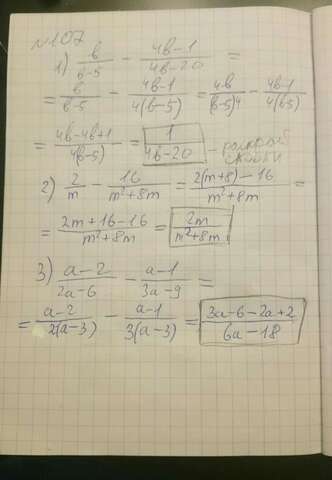 №107
1) b/(b-5) - (4b-1)/(4b-20) =
= b/(b-5) - (4b-1)/(4(b-5)) = 4b/((b-5)4) - (4b-1)/(4(b-5))
= (4b-4b+1)/(4(b-5)) = 1/(4b-20) - раскрой скобки
2) 2/m - 16/(m²+8m) = (2(m+8)-16)/(m²+8m) =
= (2m+16-16)/(m²+8m) = 2m/(m²+8m)
3) (a-2)/(2a-6) - (a-1)/(3a-9) =
= (a-2)/(2(a-3)) - (a-1)/(3(a-3)) = (3a-6-2a+2)/(6a-18)